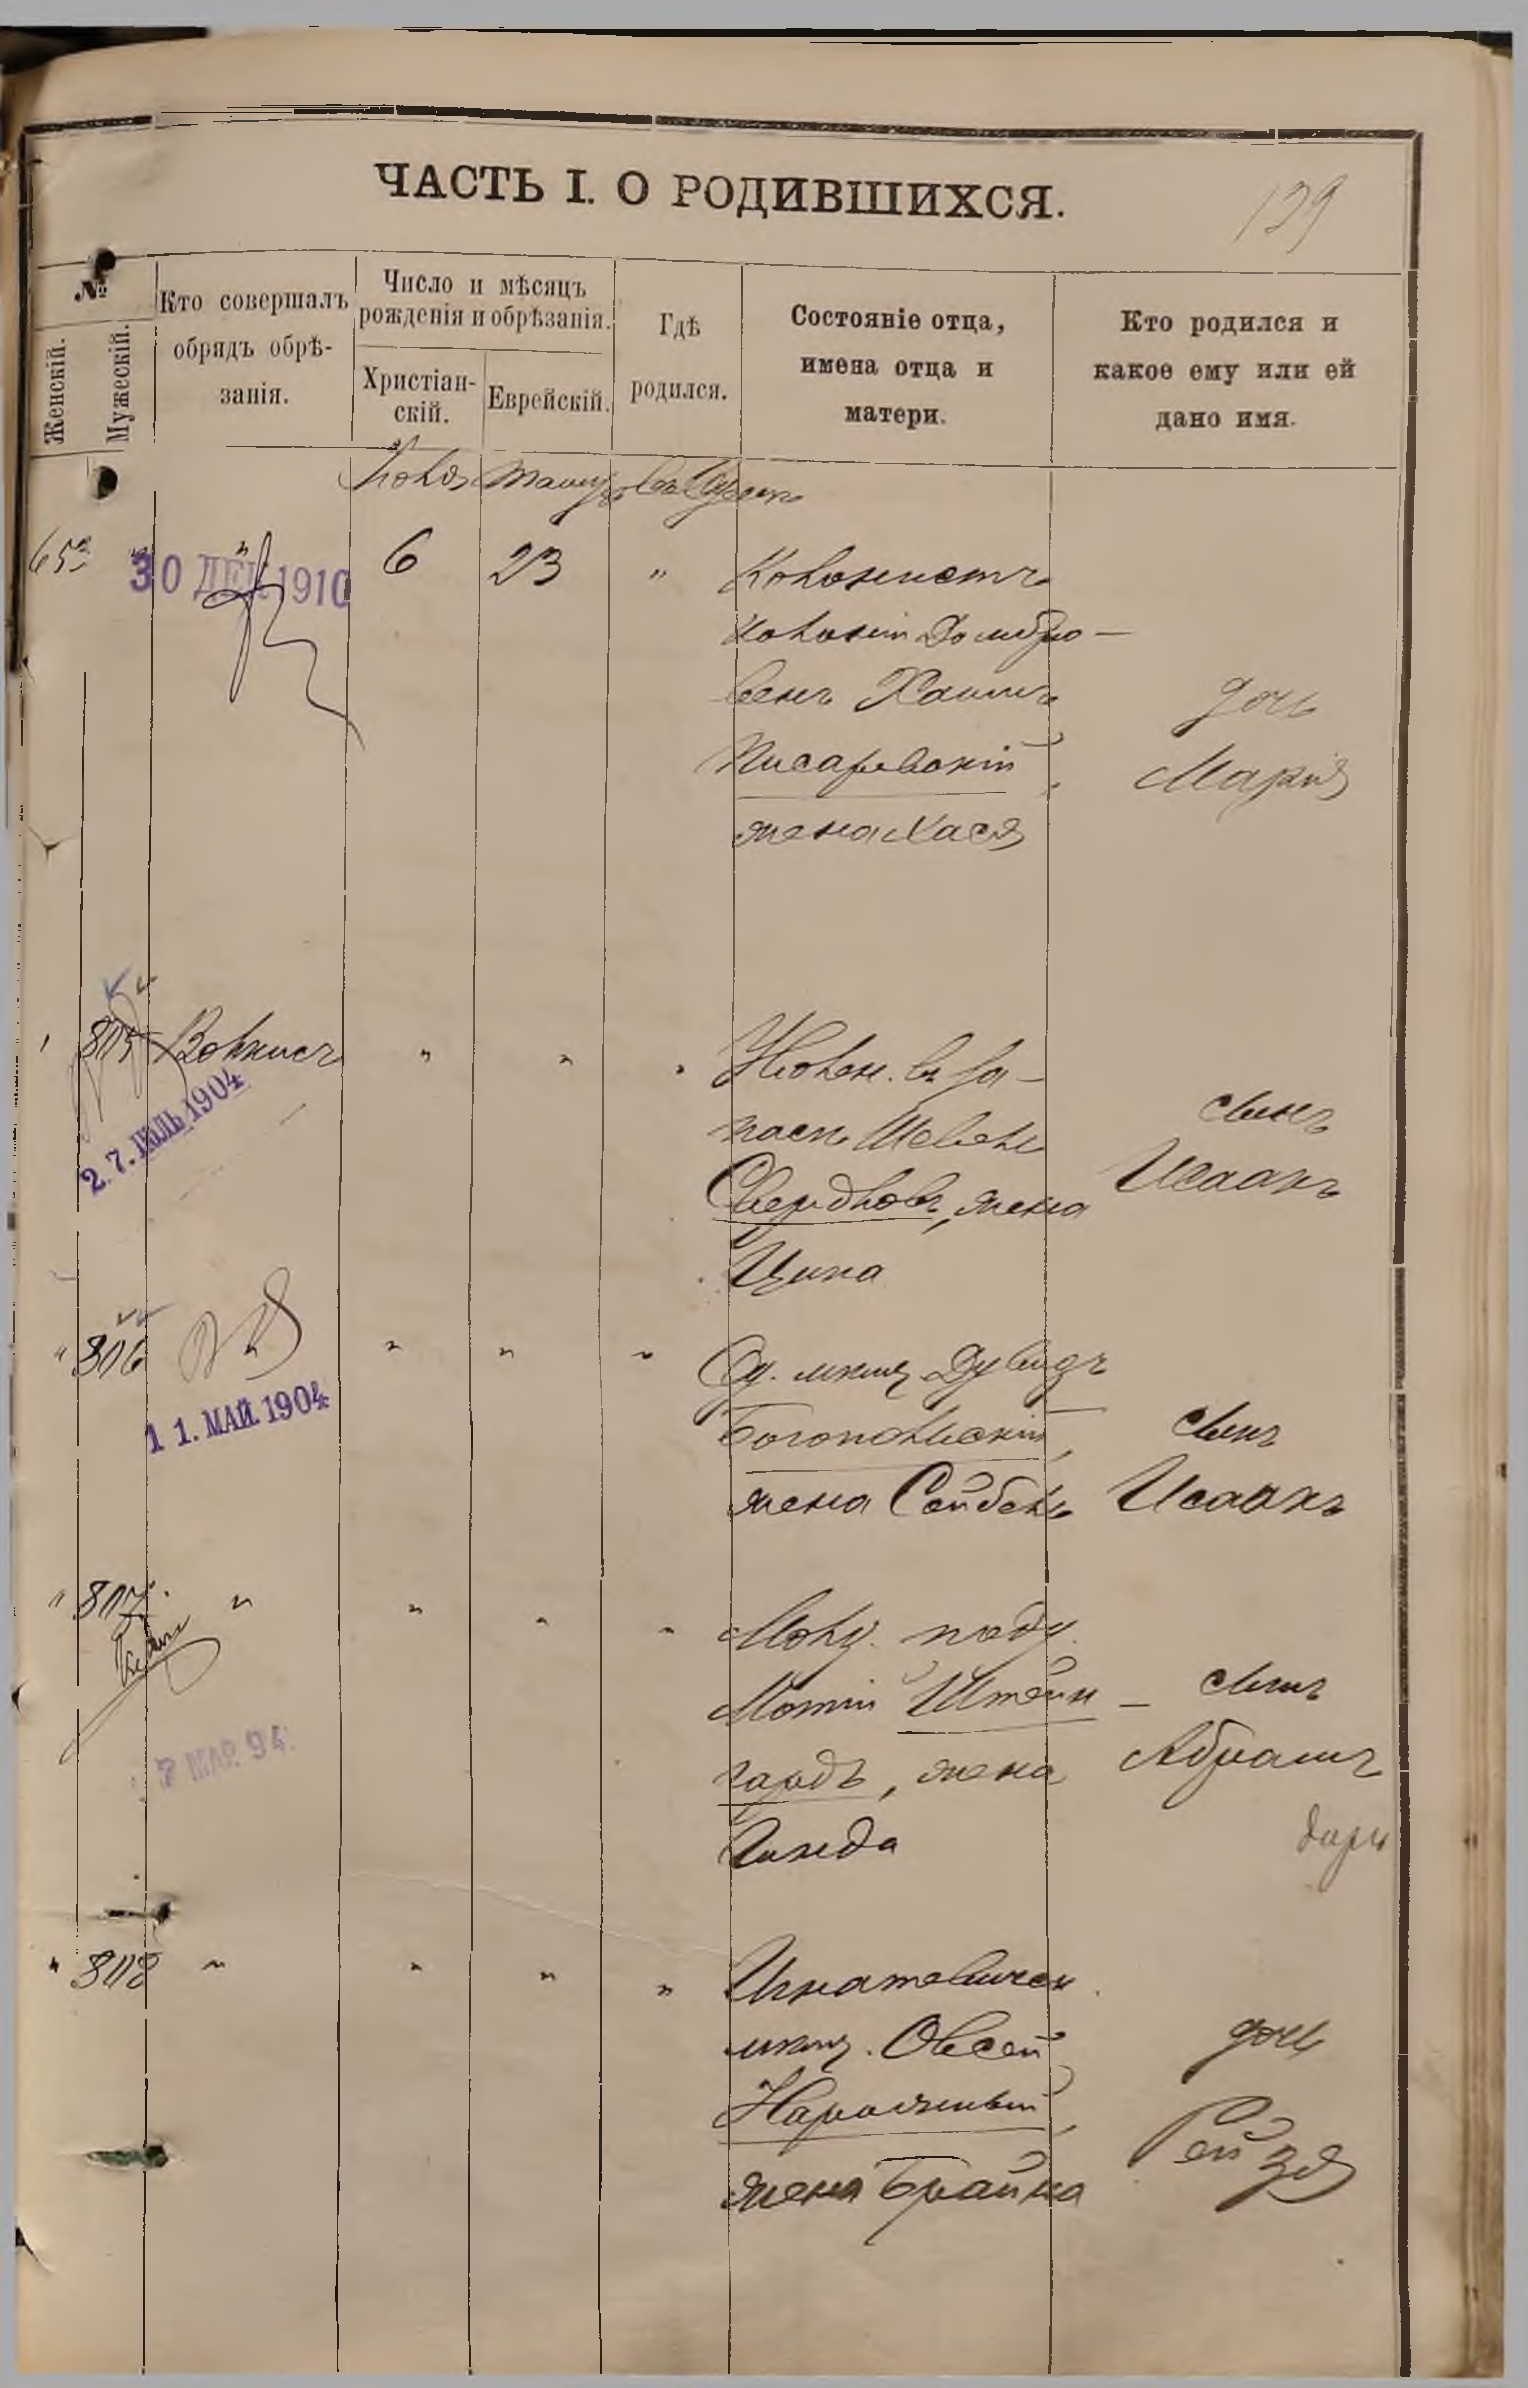 ЧАСТЬ I. О РОДИВШИХСЯ.
129
№
Женскій.
Мужескій.
Кто совершалъ
обрядъ обрѣ-
занія.
Число и мѣсяцъ
рожденія и обрѣзанія.
Христіан-
скій.
Еврейскій.
Гдѣ
родился.
Состояніе отца,
имена отца и
матери.
Кто родился и
какое ему или ей
дано имя.
Іюля Тамузъ въ Одессѣ
30 ДЕК 1910
6 23 " Колонистъ
колоніи Домбро-
венъ Хаимъ
Писаревскій,
жена Хася
дочь
Марія
805
27. ІЮЛЬ 1904
Уволен. въ за-
пасъ
Свердловъ, жена
Цина
сынъ
Исаакъ
" 806 " " "
11. МАЙ. 1904
Од. мѣщ. Дувидъ
Богопольскій,
жена Сейбель
сынъ
Исаакъ
" 807. " " " "
7 МАР. 94.
Мотій Штейн-
гардъ, жена
Гинда
сынъ
Абрамъ
" 808 " " " "
Игнатовичск.
мѣщ. Овсей
Народжный,
жена Брайна
дочь
Рейзя